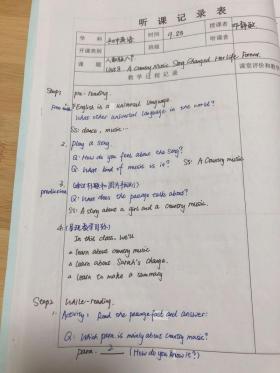 听课记录表
学科 初中英语 时间 9.28 授课者
开课类别 班级 听课者
课题 人教版八下
Unit 8 A Country Music Song Changed Her Life Forever.
教学过程记录 课堂评价和教
Step1 pre-reading.
English is a universal language.
What other universal language in the world?
SS: dance, music...
2. play a song
Q: How do you feel about the song?
Q: What kind of music is it? SS: A Country music
3.
Q: What does the passage talks about?
SS: A story about a girl and a country music.
4.
In this class, we'll
learn about country music
learn about Sarah's change.
learn to make a summary
Step2 While-reading.
1. Activity: Read the passage fast and answer:
Q: Which para. is mainly about country music?
para. 2 (How do you know it?)